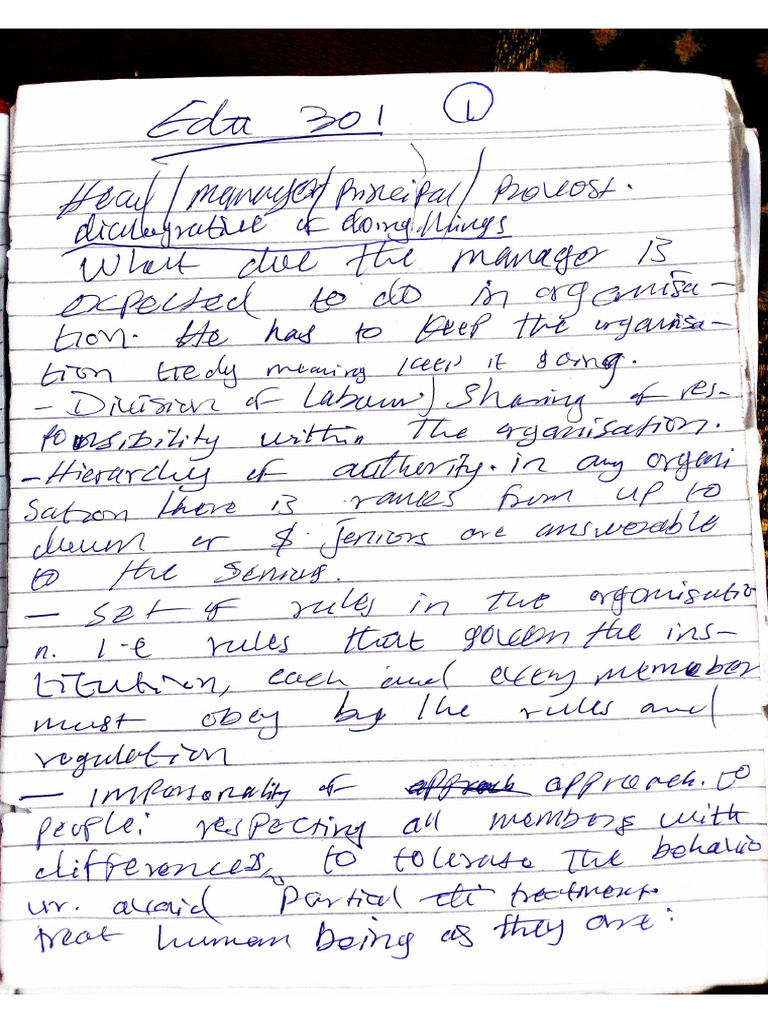 Eda 301 1
Head/manager/principal/provost.
of doing things
What due the manager is
expected to do in organisa-
tion. He has to keep the organisa-
tion tiedy meaning keep it going.
- Division of Labour/Sharing of res-
ponsibility within the organisation.
- Hierarchy of authority. in any organi
sation there is ranks from up to
down or juniors are answerable
to the seniors.
- set of rules in the organisatio
n. I-e rules that govern the ins-
titution, each and every member
must obey by the rules and
regulation
- impersonality of approach to
people: respecting all members with
differences, to tolerate the behavio
ur. avoid Partial treatment.
treat human being as they are: